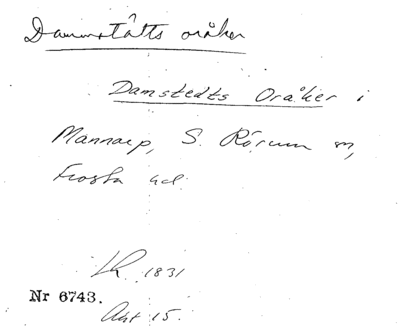 Dammståtts oråker
Damstedts Oråker i
Mannarp, S. Rörum m,
Frosta hd.
LR 1831
Nr 6743.
Akt 15.